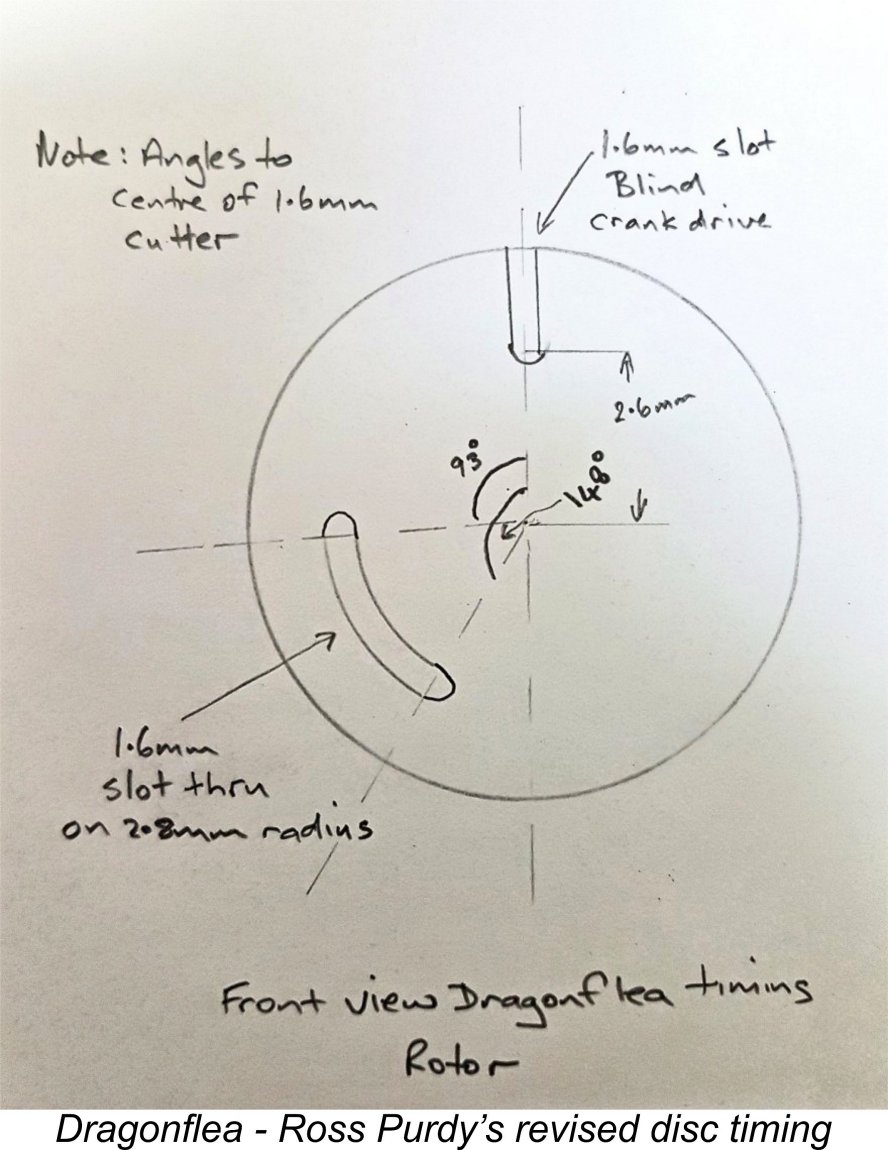 Note: Angles to
centre of 1.6mm
cutter
1.6mm slot
Blind
crank drive
2.6mm
93°
148°
1.6mm
slot thru
on 2.8mm radius
Front view Dragonflea timing
Rotor
Dragonflea - Ross Purdy's revised disc timing